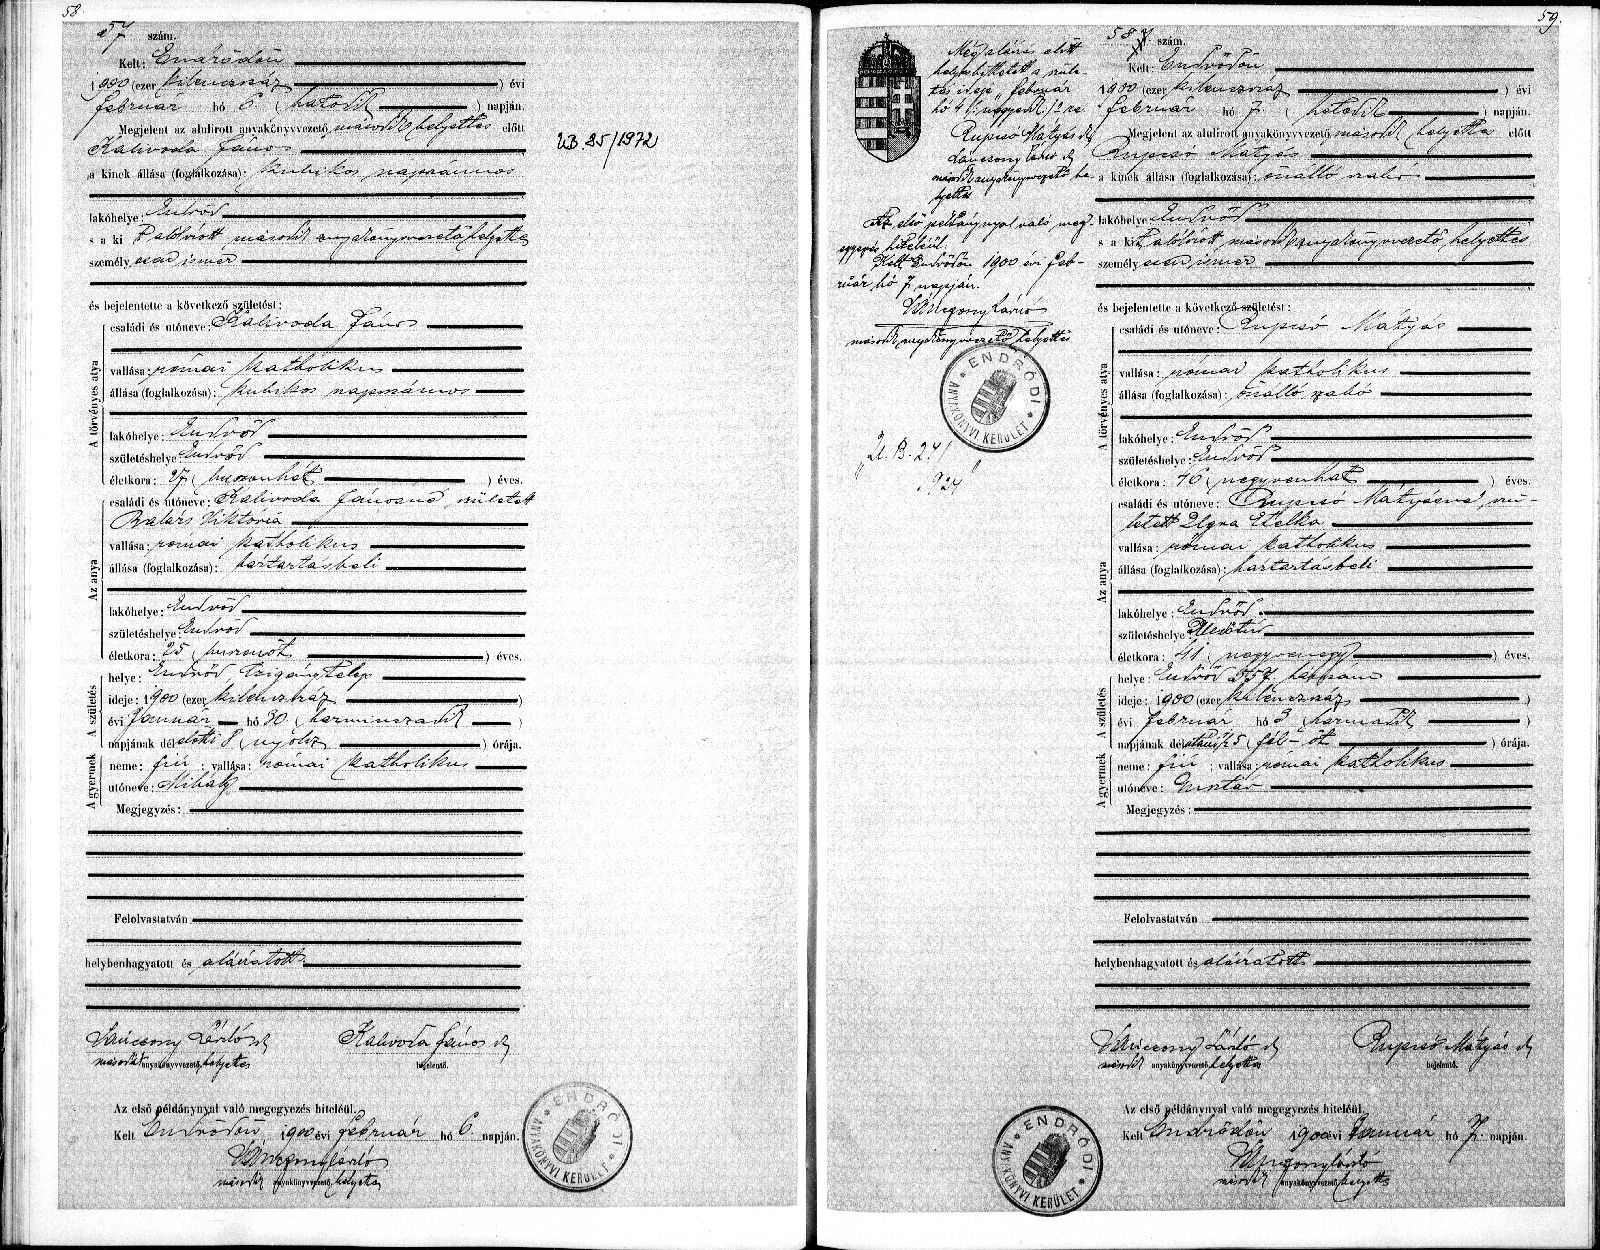 58.
57 szám.
Kelt: Endrődön
1900 (ezer kilenczszáz) évi
február hó 6. (hatodik) napján.
Megjelent az alulirott anyakönyvvezető második helyettes előtt
Kalivoda János
a kinek állása (foglalkozása): kubikos napszámos
lakóhelye: Endrőd
s a ki alólirott második anyakönyvvezető helyettes
személyesen ismer
és bejelentette a következő születést:
A törvényes atya
családi és utóneve: Kalivoda János
vallása: római katholikus
állása (foglalkozása): kubikos napszámos
lakóhelye: Endrőd
születéshelye: Endrőd
életkora: 27 (huszonhét) éves.
Az anya
családi és utóneve: Kalivoda Jánosné született
Balázs Viktória
vallása: római katholikus
állása (foglalkozása): háztartásbeli
lakóhelye: Endrőd
születéshelye: Endrőd
életkora: 25 (huszonöt) éves.
A születés
helye: Endrőd, Czigánytelep
ideje: 1900 (ezer kilenczszáz)
évi Január hó 30 (harminczadik)
napjának délelőtti 8 (nyolcz) órája.
A gyermek
neme: fiú; vallása: római katholikus
utóneve: Mihály
Megjegyzés:
Felolvastatván
helybenhagyatott és aláiratott
Vánczony László
Kalivoda János
második anyakönyvvezető helyettes
bejelentő.
Az első példánynyal való megegyezés hiteléül.
Kelt Endrődön 1900 évi február hó 6. napján.
második anyakönyvvezető helyettes
ENDRŐDI
ANYAKÖNYVI KERÜLET
UB. 25/1972
59.
Még aláirás előtt
helyesbíttetett a szüle-
tés ideje „február
Rupcsó Mátyás
második anyakönyvvezető he-
lyettes
Az első példánynyal való meg-
egyezés hiteléül.
Kelt Endrődön 1900 évi feb-
ruár hó 7 napján.
második anyakönyvvezető helyettes
ENDRŐDI
ANYAKÖNYVI KERÜLET
58 szám.
Kelt: Endrődön
1900 (ezer kilenczszáz) évi
február hó 7. napján.
Megjelent az alulirott anyakönyvvezető második helyettes előtt
Rupcsó Mátyás
a kinek állása (foglalkozása): önálló szabó
lakóhelye: Endrőd
s a kit alólirott második anyakönyvvezető helyettes
személyesen ismer
és bejelentette a következő születést:
A törvényes atya
családi és utóneve: Rupcsó Mátyás
vallása: római katholikus
állása (foglalkozása): önálló szabó
lakóhelye: Endrőd
születéshelye: Endrőd
életkora: 46 (negyvenhat) éves.
Az anya
családi és utóneve: Rupcsó Mátyásné szü-
letett Etelka
vallása: római katholikus
állása (foglalkozása): háztartásbeli
lakóhelye: Endrőd
születéshelye: Mezőtúr
életkora: 41 (negyvenegy) éves.
A születés
helye: Endrőd 357. házszám
ideje: 1900 (ezer kilenczszáz)
évi február hó 3 (harmadik)
napjának délutáni ½5 (fél öt) órája.
A gyermek
neme: fiú; vallása: római katholikus
utóneve: Gusztáv
Megjegyzés:
Felolvastatván
helybenhagyatott és aláiratott
Vánczony László
Rupcsó Mátyás
második anyakönyvvezető helyettes
bejelentő.
Az első példánynyal való megegyezés hiteléül.
Kelt Endrődön 1900 évi hó 7. napján.
második anyakönyvvezető helyettes
ENDRŐDI
ANYAKÖNYVI KERÜLET